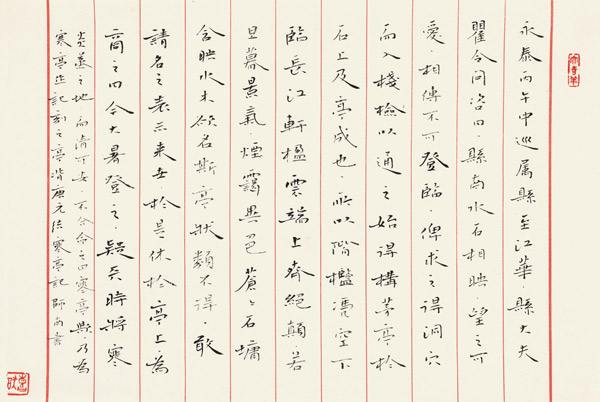 永泰丙午中巡属縣至江華縣大夫
瞿令問咨曰縣南水石相映望之可
愛相傳不可登臨俾求之得洞穴
而入棧險以通之始得構茅亭於
石上及亭成也所以階檻憑空下
臨長江軒楹雲端上齊絕顛若
旦暮景氣煙靄異色蒼々石墉
含映水木欲名斯亭狀類不得敢
請名之表示來世於是休於亭上為
商之曰今大暑登之疑天時將寒
炎蒸之地而清可安不合命之曰寒亭歟乃為
寒亭作記刻之亭背唐元結寒亭記